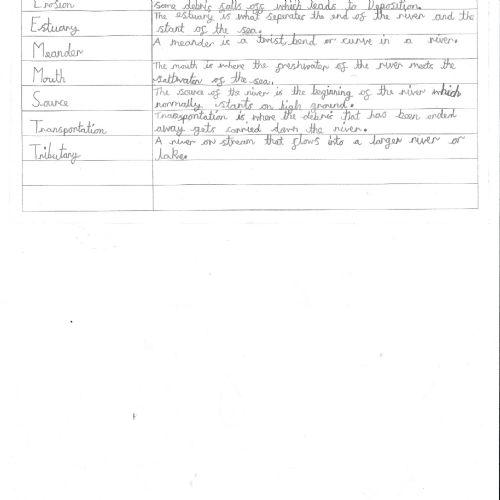 Erosion
Some debris falls off which leads to Deposition.
Estuary
The estuary is what separates the end of the river and the
start of the sea.
Meander
A meander is a twist, bend or curve in a river.
Mouth
The mouth is where the freshwater of the river meets the
saltwater of the sea.
Source
The source of the river is the beginning of the river which
normally starts on high ground.
Transportation
Transportation is where the debris that has been eroded
away gets carried down the river.
Tributary
A river or stream that flows into a larger river or
lake.